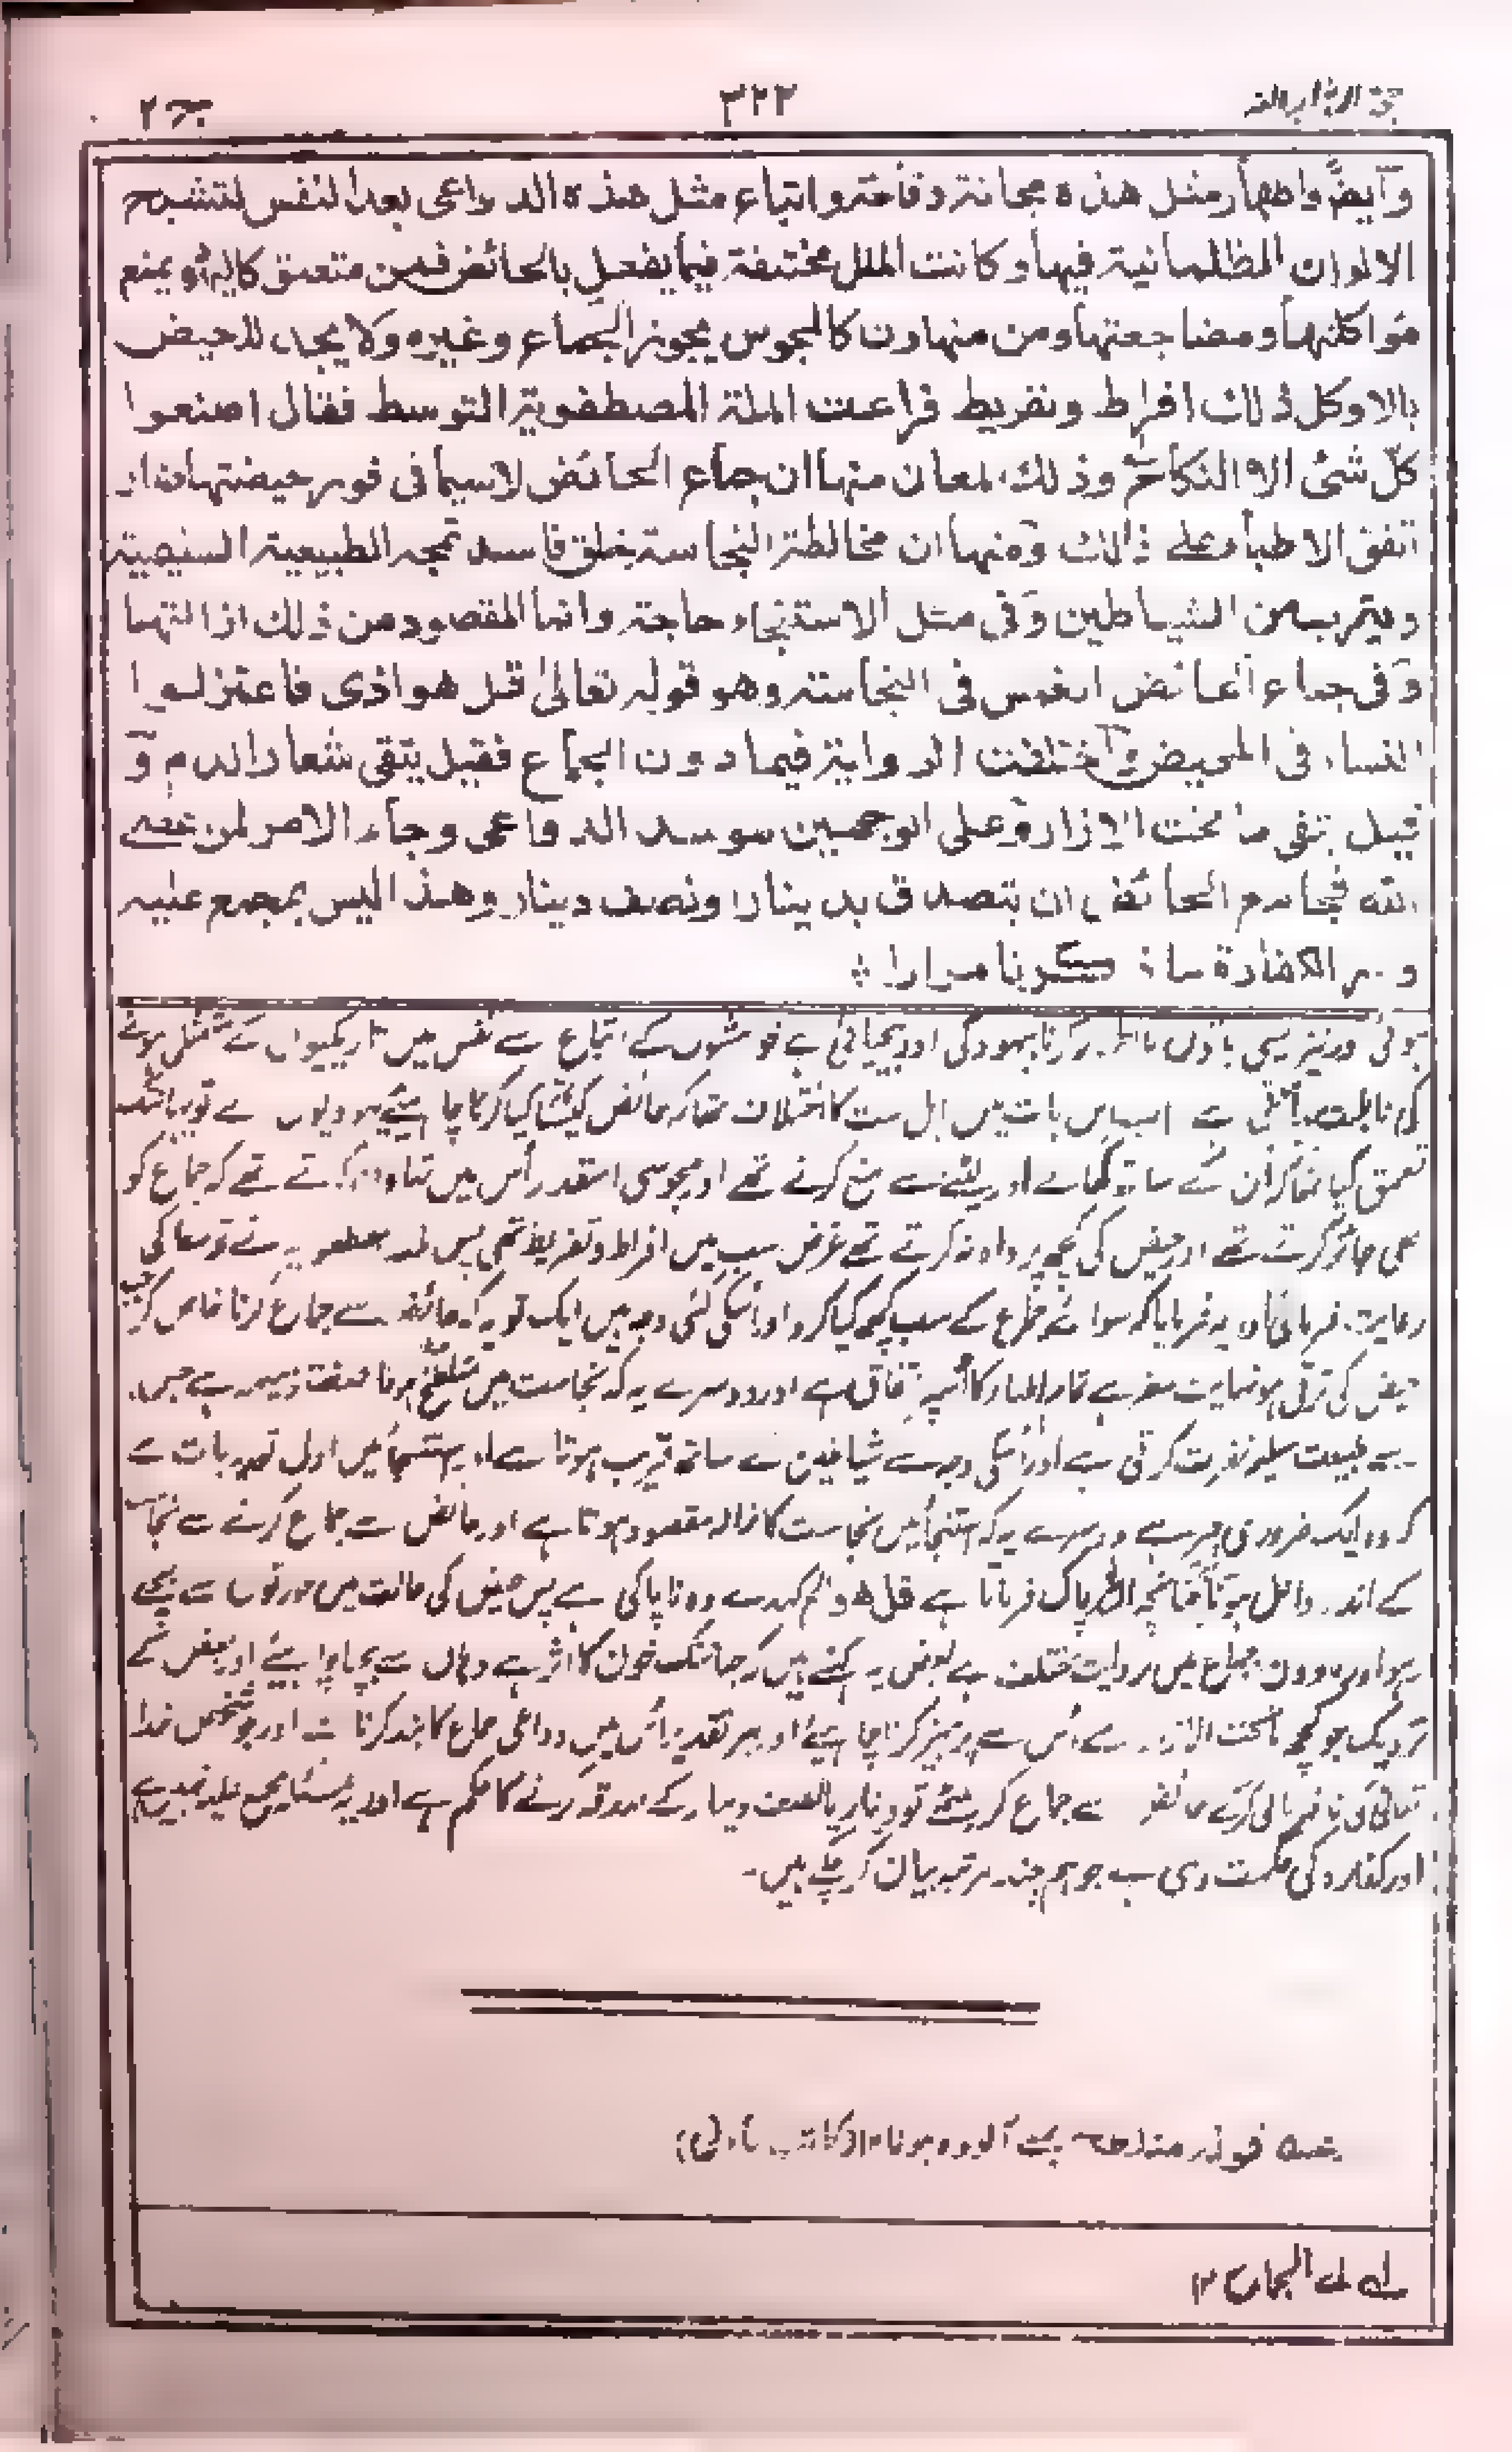 ۳۲۲
وآيضًا واظهار مثل هذه مجانة وقاحة واتباع مثل هذه الدواعى يعد النفس لتشبح
الالوان الظلمانية فيها وكانت الملل مختلفة فيما يفعل بالحائض فمن متعمق كاليهود يمنع
مؤاكلتها ومضاجعتها ومن متهاون كالمجوس يجوز الجماع وغيره ولا يجد للحيض
بالا وكل ذلك افراط وتفريط فراعت الملة المصطفوية التوسط فقال اصنعوا
كل شئ الا النكاح وذلك لمعان منها ان جماع الحائض لاسيما فى فور حيضتها ضار
اتفق الاطباء على ذلك ومنها ان مخالطة النجاسة خلق فاسد تمجه الطبيعية السليمة
ويقرب من الشياطين وفى مثل الاستنجاء حاجة وانما المقصود من ذلك ازالتها
وفى جماع الحائض الغمس فى النجاسة وهو قوله تعالى قل هو اذى فاعتزلوا
النساء فى المحيض واختلفت الرواية فيما دون الجماع فقيل يتقى شعار الدم و
قيل يتقى ما تحت الازار وعلى الوجهين سد الدواعى وجاء الامر لمن عصى
الله فجامع الحائض ان يتصدق بدينار او نصف دينار وهذا ليس بمجمع عليه
وسر الكفارة ما ذكرنا مرارا
ہوتی اور نیز ایسی باتوں کا اظہار کرنا بیہودگی اور بیحیائی ہے خواہشوں کے اتباع سے نفس میں تاریکیوں کے
کی قابلیت اب اس بات میں اہل ملت کا اختلاف تھا کہ حائض کیساتھ کیا کرنا چاہیئے یہودیوں نے تو یہانتک
تعمق کیا تھا کہ ان کے ساتھ کھانے اور لیٹنے سے منع کرتے تھے اور مجوسی اسقدر اس میں تہاون کرتے تھے کہ جماع کو
بھی جائز کرتے تھے اور حیض کی کچھ پرواہ نہ کرتے تھے غرض سب میں افراط و تفریط تھی پس ملت مصطفویہ نے توسط کی
رعایت فرمائی اور یہ فرمایا کہ سوائے جماع کے سب کچھ کیا کرو اور اسکی کئی وجہ ہیں ایک تو یہ کہ حائضہ سے جماع کرنا خاص کر جب
حیض کی ترقی ہو نہایت مضر ہے تمام اطباء کا اسپر اتفاق ہے اور دوسرے یہ کہ نجاست میں ہونا صفت ذمیمہ ہے جس
سے طبیعت سلیمہ نفرت کرتی ہے اور اسکی وجہ سے شیاطین کے ساتھ قریب ہوتا ہے اور استنجا میں اول تو یہ بات ہے
کہ وہ ایک ضروری چیز ہے دوسرے یہ کہ استنجا میں نجاست کا ازالہ مقصود ہوتا ہے اور حائض سے جماع کرنے سے نجاست
کے اندر داخل ہونا چنانچہ اللہ پاک فرماتا ہے قل هو الخ کہدے وہ ناپاکی ہے پس حیض کی حالت میں عورتوں سے بچے
رہو اور مادون جماع میں روایت مختلف ہے بعض یہ کہتے ہیں کہ جہانتک خون کا اثر ہے وہاں سے بچنا چاہیئے اور بعض کے
نزدیک جو کچھ ماتحت الازار ہے اس سے پرہیز کرنا چاہیئے اور ہر تقدیر اس میں دواعی جماع کا بند کرنا ہے اور جو شخص خدا
تعالی کی نافرمانی کرکے حائضہ سے جماع کر بیٹھے تو دینار یا نصف دینار کے صدقہ کرنے کا حکم ہے اور یہ مسئلہ مجمع علیہ نہیں ہے
اور کفارہ کی حکمت وہی ہے جو ہم چند مرتبہ بیان کر چکے ہیں۔
آلودہ ہونا